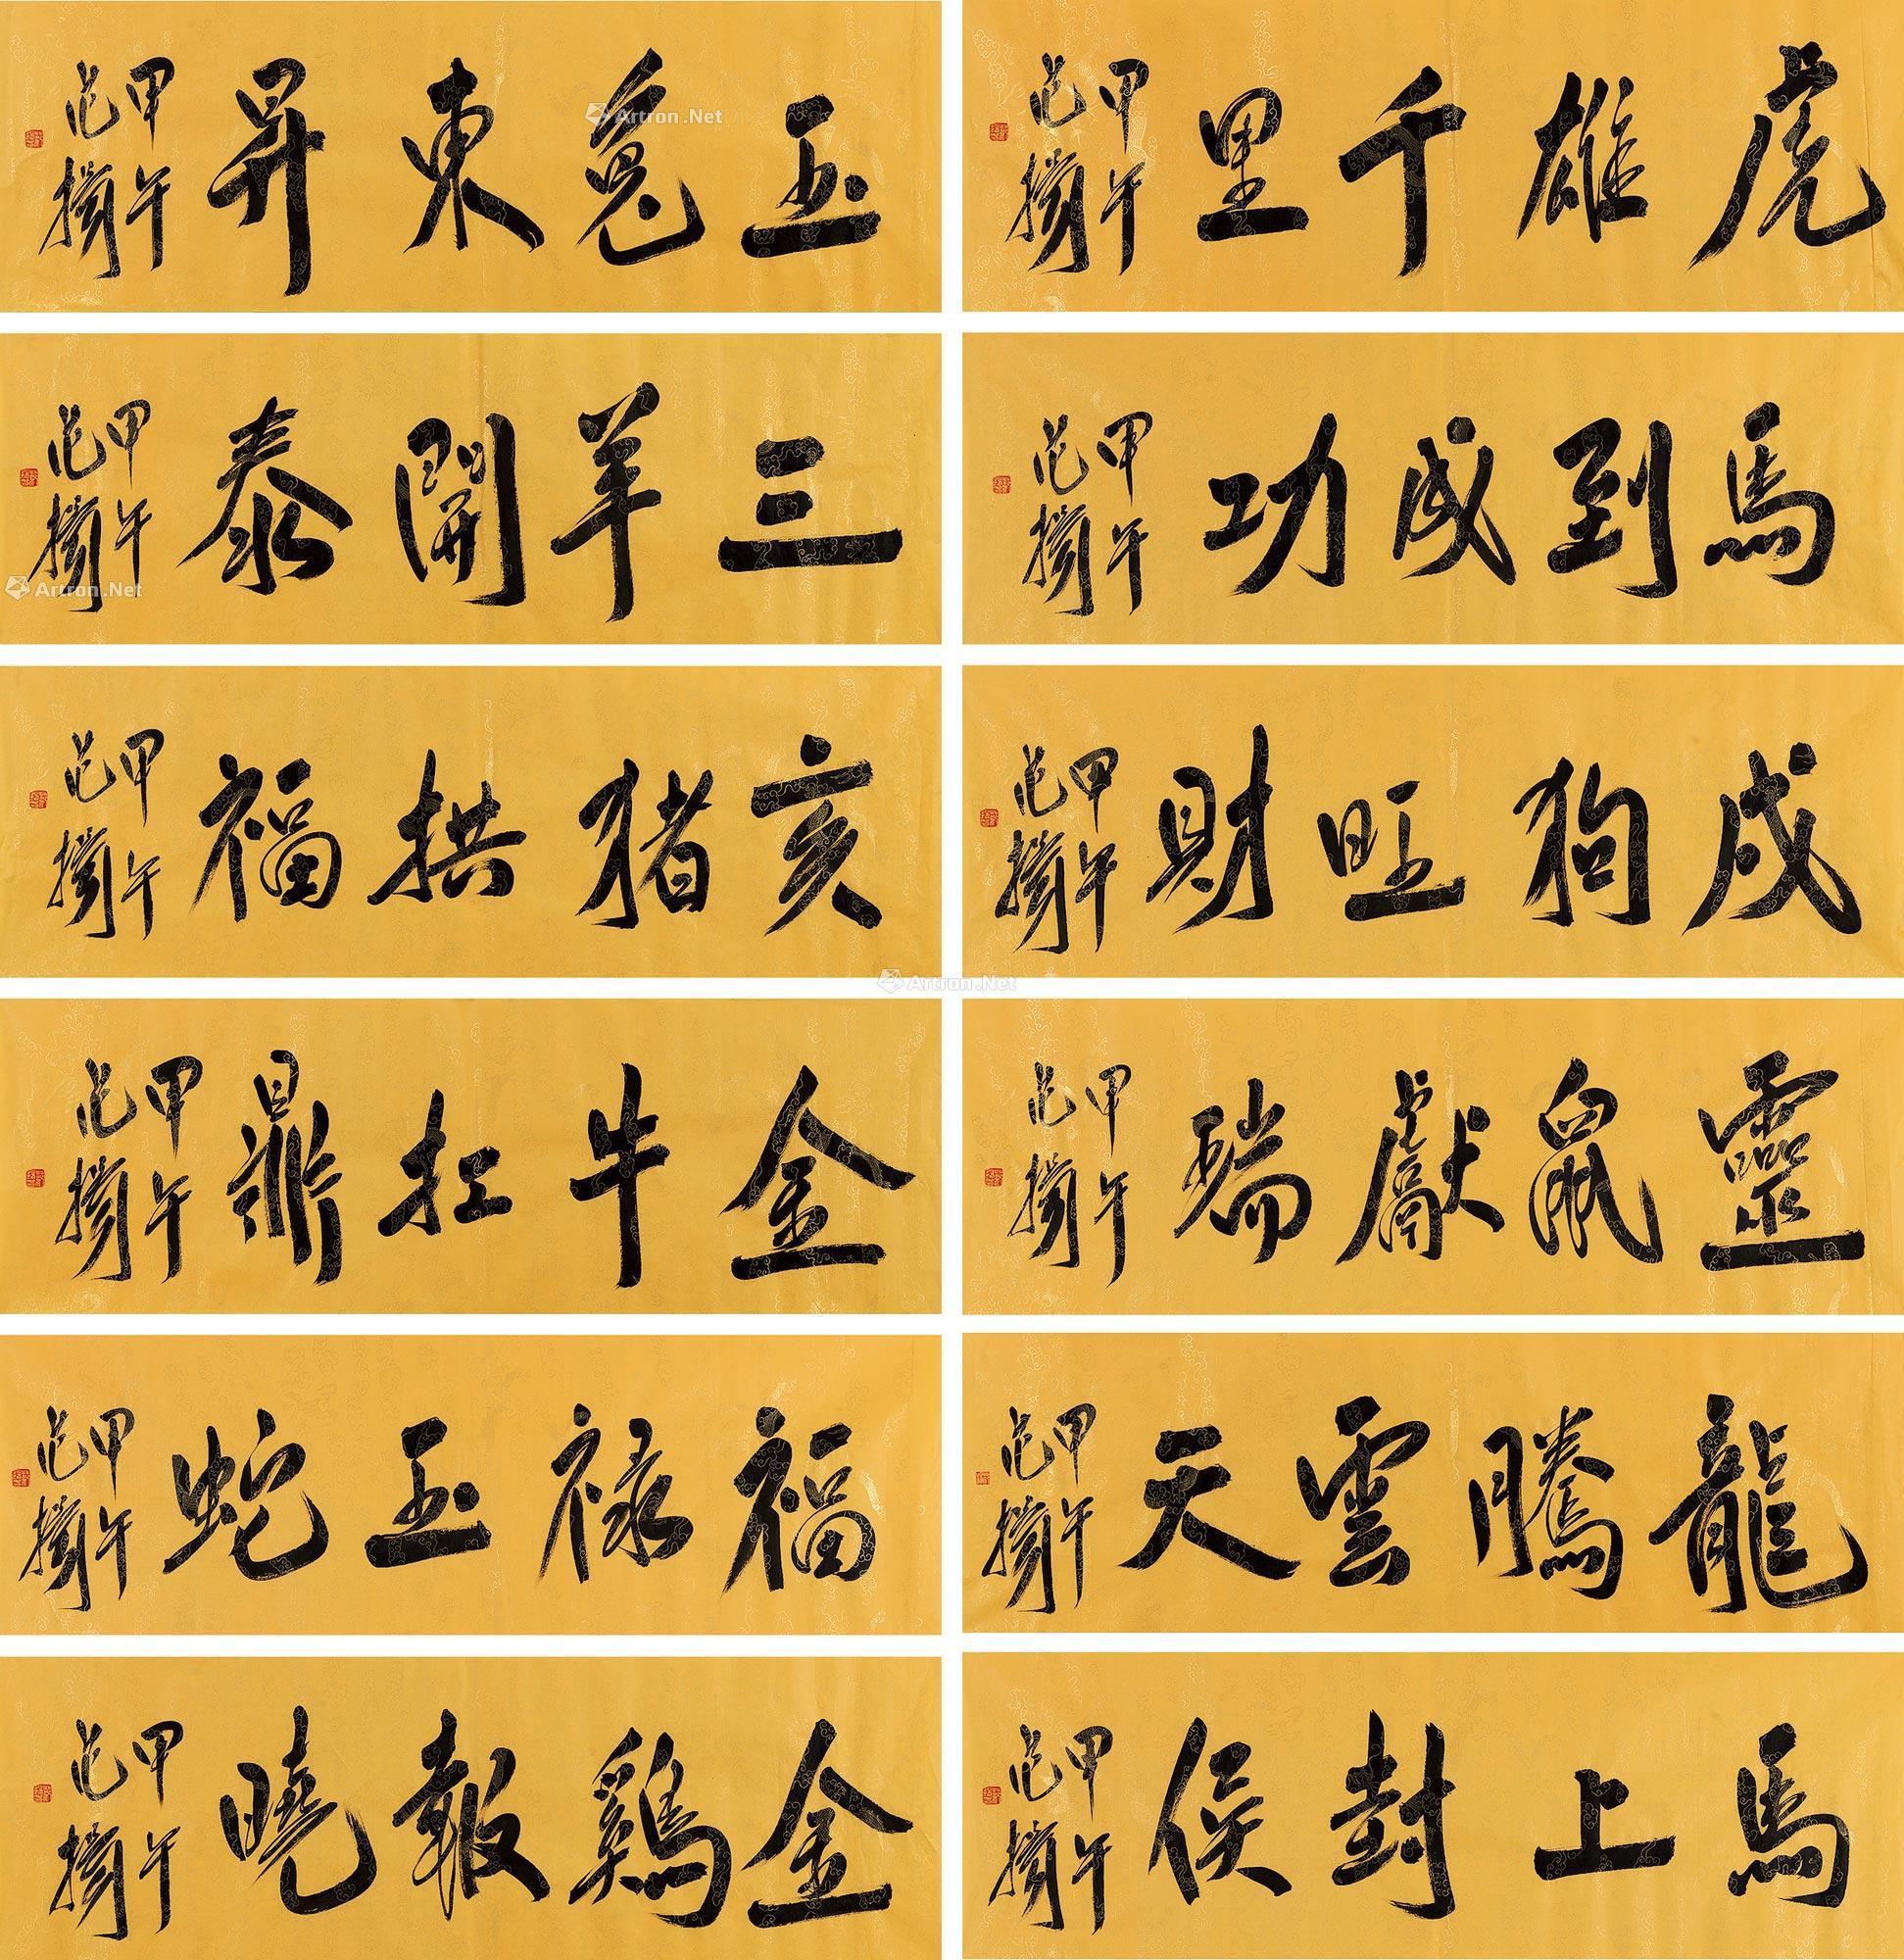 玉兔東昇
甲午
范擴
虎雄千里
甲午
范擴
三羊開泰
甲午
范擴
馬到成功
甲午
范擴
亥猪拱福
甲午
范擴
戌狗旺財
甲午
范擴
金牛扛鼎
甲午
范擴
靈鼠獻瑞
甲午
范擴
福禄玉蛇
甲午
范擴
龍騰雲天
甲午
范擴
金鷄報曉
甲午
范擴
馬上封侯
甲午
范擴
Artron.Net
Artron.Net
Artron.Net